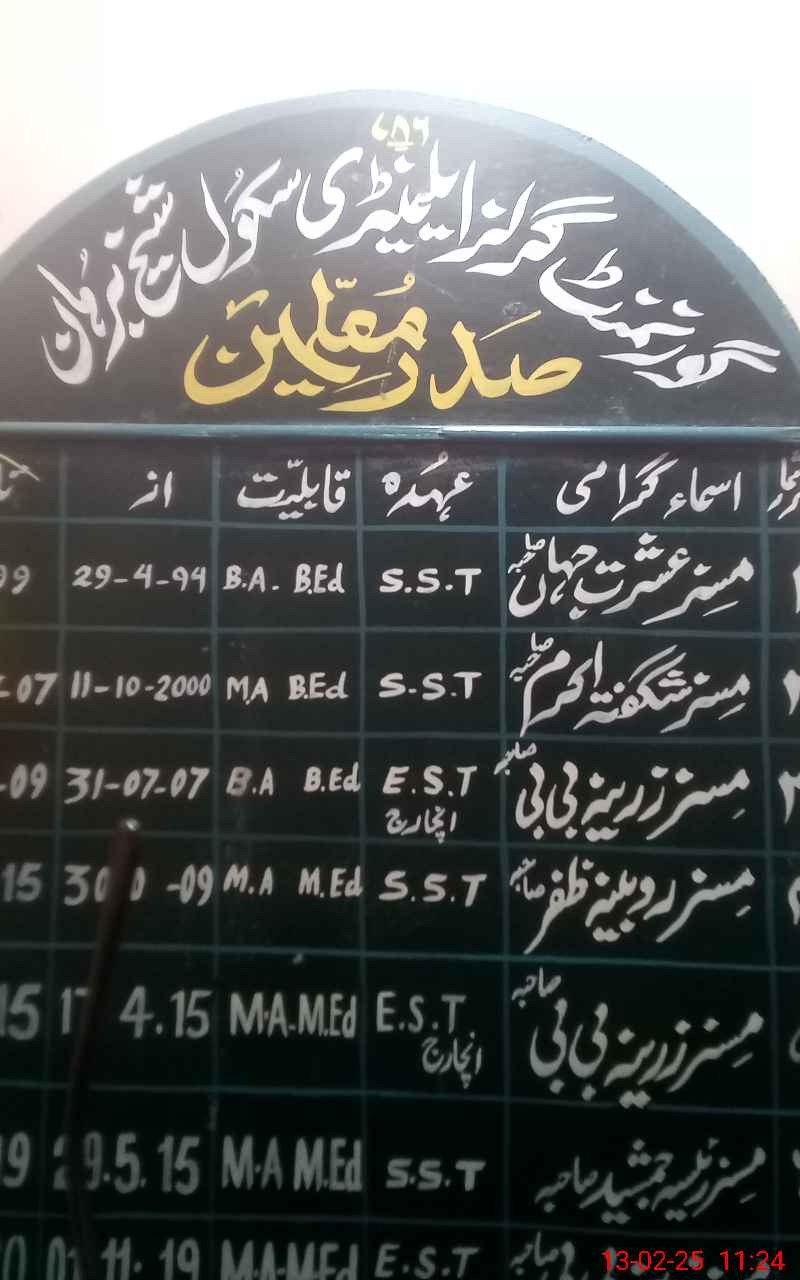 ۷۸۶
گورنمنٹ گرلز ایلیمنٹری سکول شیخ ترہان
صدر معلمین
اسماء گرامی عہدہ قابلیّت از
مسز عشرت جہاں صاحبہ S.S.T B.A. B.Ed 29-4-94 99
مسز شگفتہ اکرم صاحبہ S.S.T M.A B.Ed 11-10-2000 -07
مسز زرینہ بی بی صاحبہ E.S.T انچارج B.A B.Ed 31-07-07 -09
مسز روبینہ ظفر صاحبہ S.S.T M.A M.Ed -09 15
مسز زرینہ بی بی صاحبہ E.S.T انچارج M.A.M.Ed 4.15 15
مسز رئیسہ جمشید صاحبہ S.S.T M.A M.Ed 29.5.15 19
صاحبہ E.S.T M.A.M.Ed 01.11.19
13-02-25 11:24